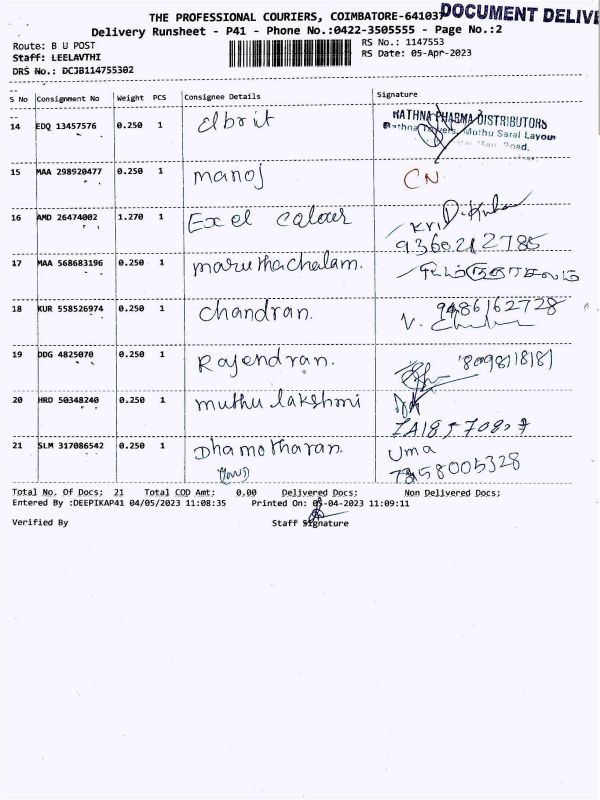 THE PROFESSIONAL COURIERS, COIMBATORE-641037 DOCUMENT DELIV
Delivery Runsheet - P41 - Phone No.:0422-3505555 - Page No.:2
Route: B U POST RS No.: 1147553
Staff: LEELAVTHI RS Date: 05-Apr-2023
DRS No.: DCJB114755302
S No Consignment No Weight PCS Consignee Details Signature
14 EDQ 13457576 0.250 1 Elbrit RATHNA PHARMA DISTRIBUTORS
Rathna Towers, Muthu Saral Layout
Road.
15 MAA 298920477 0.250 1 manoj CN
16 AMD 26474002 1.270 1 Excel colour
9360212785
17 MAA 568683196 0.250 1 maruthachalam.
18 KUR 558526974 0.250 1 chandran. 9486162728
19 DDG 4825070 0.250 1 Rajendran. 8098118181
20 HRD 50348240 0.250 1 muthu lakshmi
21 SLM 317086542 0.250 1 Dhamotharan. Uma
7358005328
Total No. Of Docs: 21 Total COD Amt: 0.00 Delivered Docs: Non Delivered Docs:
Entered By :DEEPIKAP41 04/05/2023 11:08:35 Printed On: 05-04-2023 11:09:11
Verified By Staff Signature